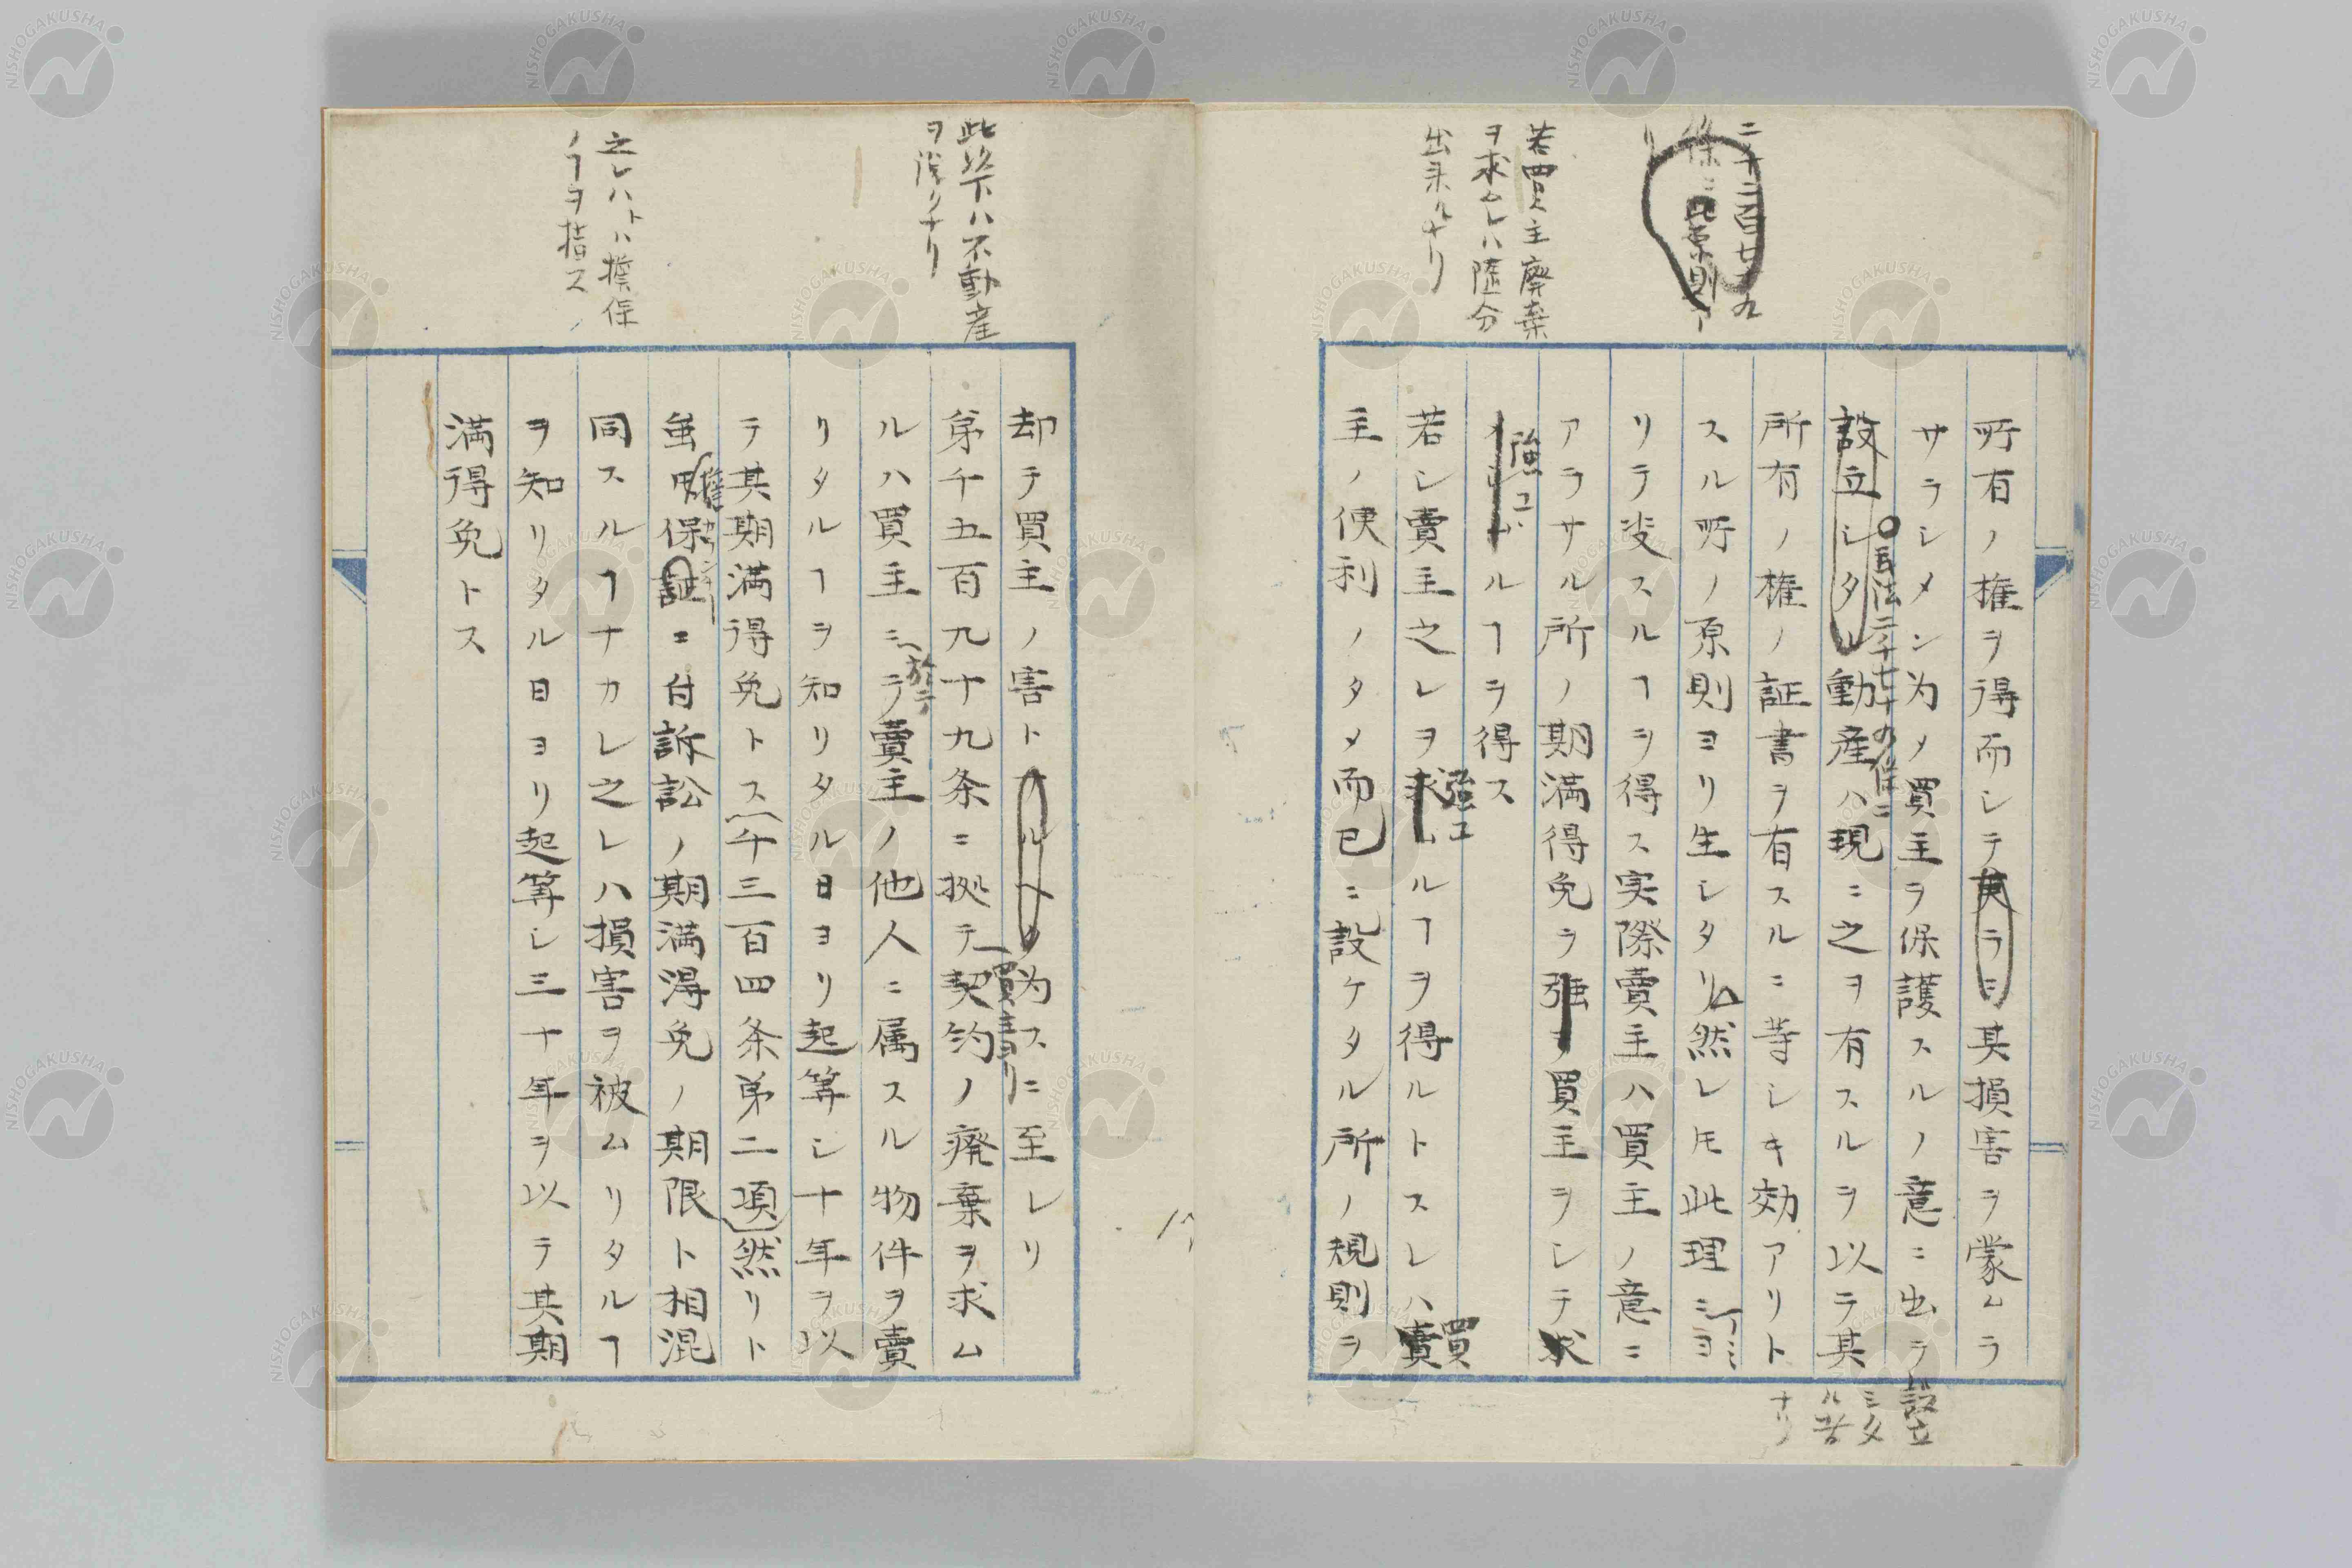 二千二百七十九
条ニ此原則ア
リ
若買主廃棄
ヲ求ムレハ随分
出来ルナリ
所有ノ権ヲ得而シテ其損害ヲ蒙ムラ
サラシメン为メノ買主ヲ保護スルノ意ニ出ラ
設立
シタ
ル者
ナリ
民法二千二百七十九条ニ
設立シタル動産ハ現ニ之ヲ有スルヲ以テ其
所有ノ権ノ証書ヲ有スルニ等シキ効アリト
スル所ノ原則ヨリ生シタリ然レモ此理ニヨ
リテ妛スルヿヲ得ス実際賣主ハ買主ノ意ニ
アラサル所ノ期満得免ヲ強ヲ買主ヲシテ求
強ユ
ルヿヲ得ス
強ユ
若シ賣主之レヲ求ムルヿヲ得ルトスレハ賣
買
主ノ便利ノタメ而已ニ設ケタル所ノ規則ヲ
此以下ハ不動産
ヲ論スルナリ
之レハトハ擔保
ノヿヲ指ス
却テ買主ノ害トナルヘク为スニ至レリ
買主ヨリ
第千五百九十九条ニ拠テ契約ノ廃棄ヲ求ム
ルハ買主ニ
於テ
賣主ノ他人ニ属スル物件ヲ賣
リタルヿヲ知リタル日ヨリ起算シ十年ヲ以
テ其期満得免トス(千三百四条第二項)然リト
虽
擔
保証ニ付訴訟ノ期満得免ノ期限ト相混
同スルヿナカレ之レハ損害ヲ被ムリタルヿ
ヲ知リタル日ヨリ起算シ三十年ヲ以テ其期
満得免トス